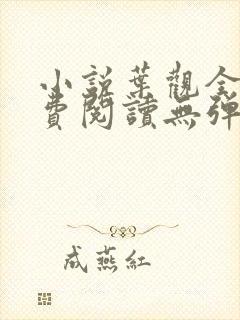 小說葉觀全
費閱讀無彈
成燕紅